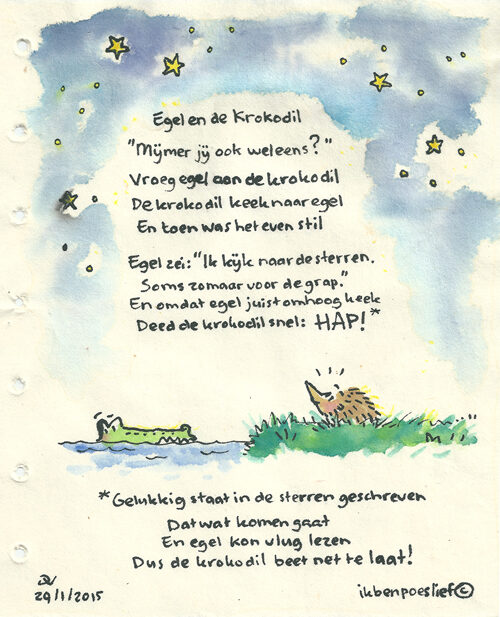 Egel en de Krokodil
"Mijmer jij ook weleens?"
Vroeg egel aan de krokodil
De krokodil keek naar egel
En toen was het even stil
Egel zei: "Ik kijk naar de sterren.
Soms zomaar voor de grap."
En omdat egel juist omhoog keek
Deed de krokodil snel: HAP!*
*Gelukkig staat in de sterren geschreven
Dat wat komen gaat
En egel kon vlug lezen
Dus de krokodil beet net te laat!
29/1/2015
ikbenpoeslief©